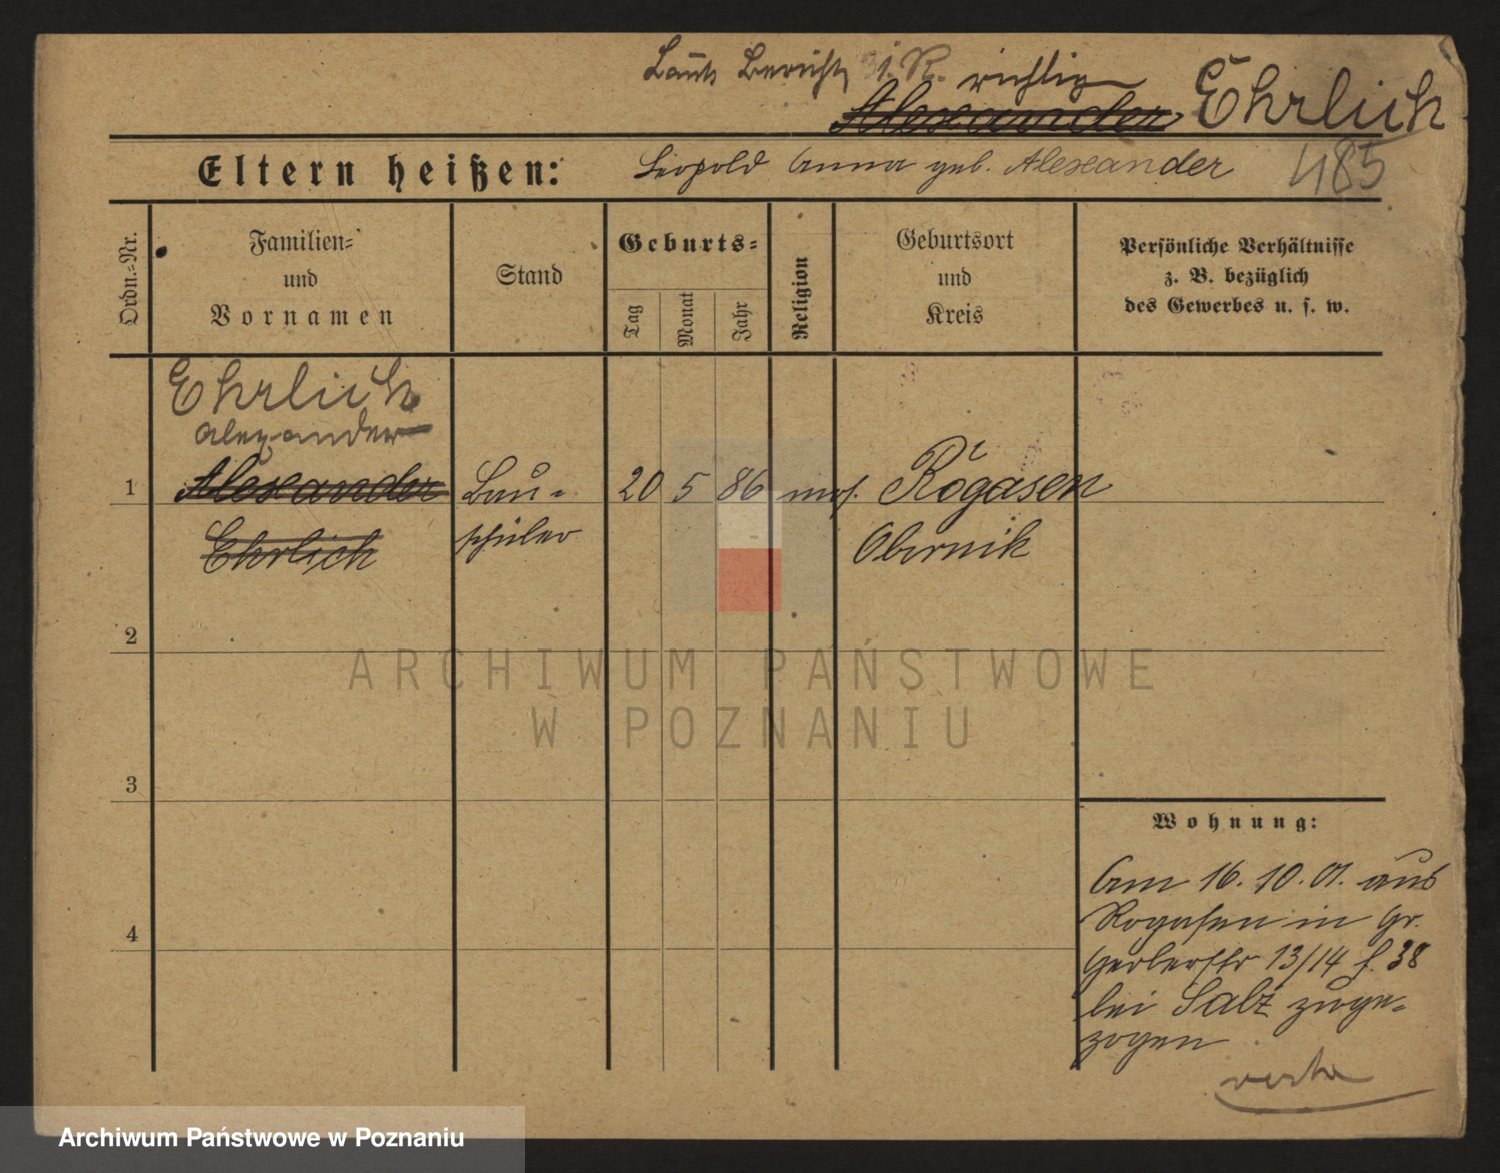 Laut Bericht i. R. richtig
Alexander Ehrlich
Eltern heißen: Leopold Anna geb. Alexander 485
Ordn.-Nr.
Familien- und Vornamen
Stand
Geburts-
Tag
Monat
Jahr
Religion
Geburtsort und Kreis
Persönliche Verhältnisse z. B. bezüglich des Gewerbes u. s. w.
Ehrlich
Alexander
1 Alexander Bau- 20 5 86 mos. Rogasen
Ehrlich schüler Obornik
2
3
4
Wohnung:
Am 16. 10. 01. aus
Rogasen in Gr.
Gerberstr 13/14 f. 38
bei Salz zuge-
zogen
ARCHIWUM PAŃSTWOWE
W POZNANIU
Archiwum Państwowe w Poznaniu